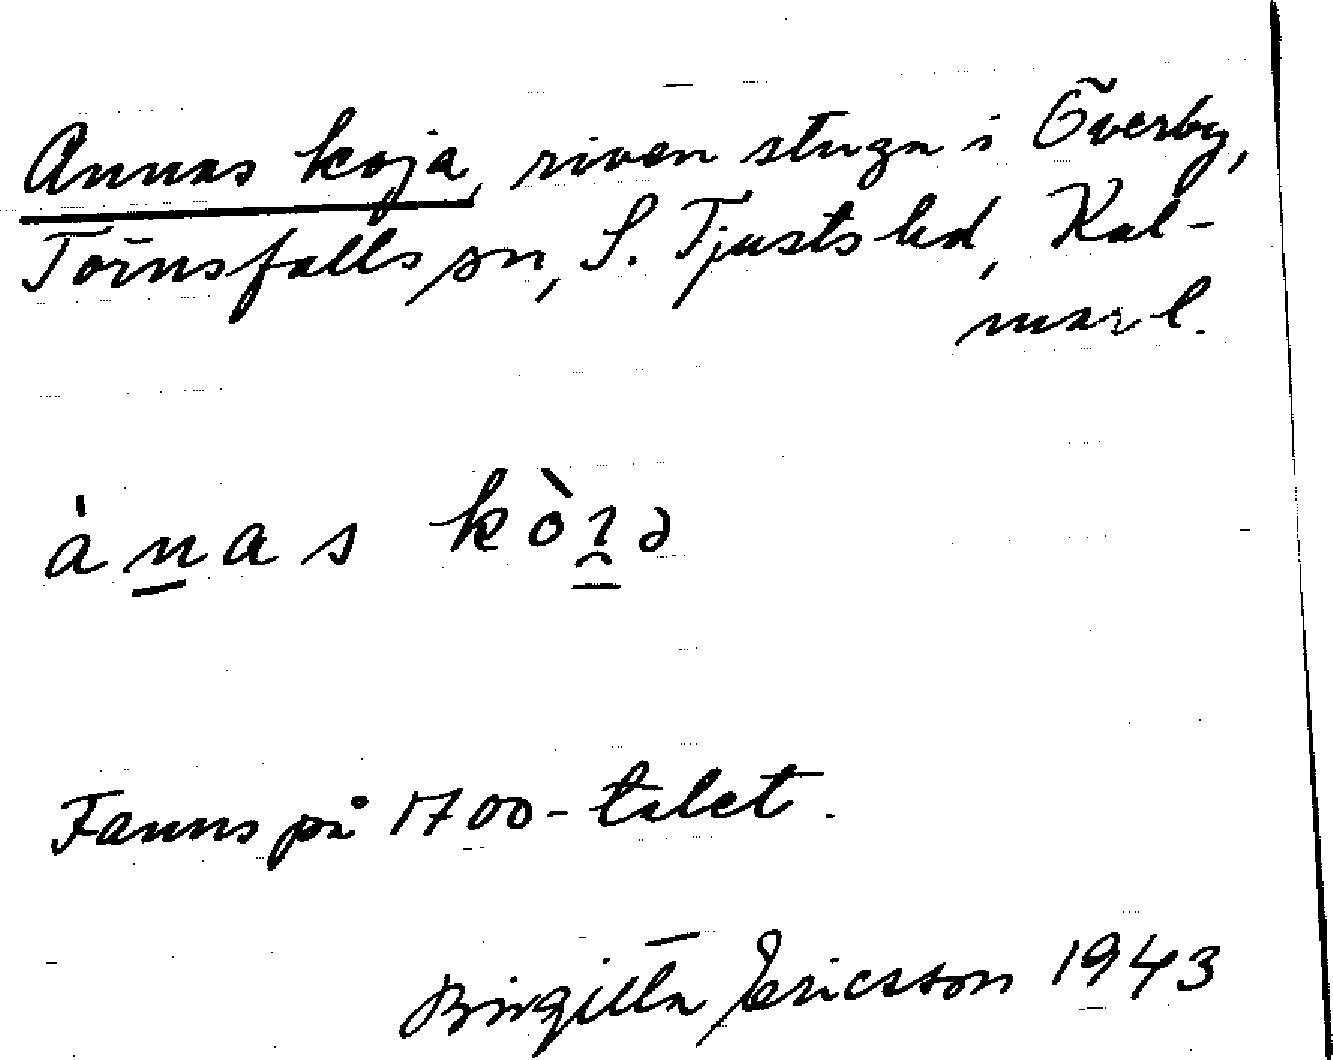 Annas koja, riven stuga i Överby,
Törnsfalls sn, S. Tjusts hd, Kal-
mar l.
ànas kòıə
Fanns på 1700-talet.
Birgitta Ericsson 1943